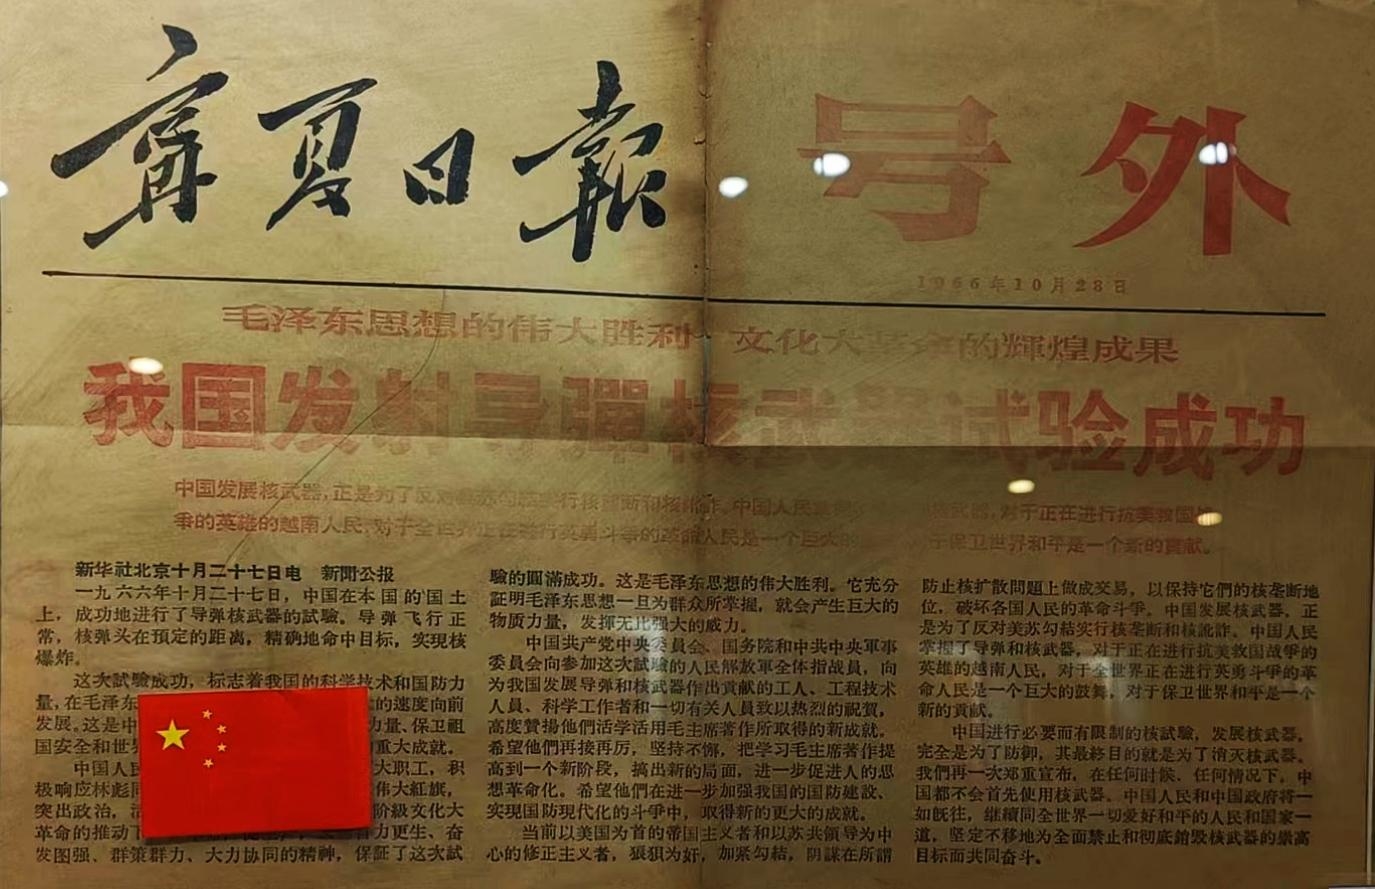 宁夏日報
号外
1966年10月28日
毛泽东思想的伟大胜利 文化大革命的輝煌成果
我国发射导彈核武器试验成功
中国发展核武器,正是为了反对美苏勾结实行核壟断和核訛詐。中国人民掌握 核武器,对于正在进行抗美救国战
争的英雄的越南人民,对于全世界正在进行英勇斗争的革命人民是一个巨大的 对于保卫世界和平是一个新的貢献。
新华社北京十月二十七日电 新聞公报
一九六六年十月二十七日,中国在本国的国土
上,成功地进行了导弹核武器的試驗。导弹飞行正
常,核弹头在預定的距离,精确地命中目标,实現核
爆炸。
这次試驗成功,标志着我国的科学技术和国防力
量,在毛泽东 的速度向前
发展。这是中 力量、保卫祖
国安全和世界 重大成就。
中国人民 大职工,积
极响应林彪同 伟大紅旗,
突出政治, 阶級文化大
革命的推动下 自力更生、奋
发图强、群策群力、大力协同的精神,保証了这次試
驗的圓滿成功。这是毛泽东思想的伟大胜利。它充分
証明毛泽东思想一旦为群众所掌握,就会产生巨大的
物质力量,发揮无比强大的威力。
中国共产党中央委員会、国务院和中共中央軍事
委員会向参加这次試驗的人民解放軍全体指战員,向
为我国发展导弹和核武器作出貢献的工人、工程技术
人員、科学工作者和一切有关人員致以热烈的祝賀,
高度贊揚他們活学活用毛主席著作所取得的新成就。
希望他們再接再厉,坚持不懈,把学习毛主席著作提
高到一个新阶段,搞出新的局面,进一步促进人的思
想革命化。希望他們在进一步加强我国的国防建設、
实現国防現代化的斗爭中,取得新的更大的成就。
当前以美国为首的帝国主义者和以苏共領导为中
心的修正主义者,狼狽为奸,加紧勾結,阴謀在所謂
防止核扩散問題上做成交易,以保持它們的核壟断地
位,破坏各国人民的革命斗爭。中国发展核武器,正
是为了反对美苏勾結实行核壟断和核訛詐。中国人民
掌握了导弹和核武器,对于正在进行抗美救国战爭的
英雄的越南人民,对于全世界正在进行英勇斗爭的革
命人民是一个巨大的鼓舞,对于保卫世界和平是一个
新的貢献。
中国进行必要而有限制的核試驗,发展核武器,
完全是为了防御,其最終目的就是为了消灭核武器。
我們再一次郑重宣布,在任何时候、任何情况下,中
国都不会首先使用核武器。中国人民和中国政府将一
如既往,継續同全世界一切爱好和平的人民和国家一
道,坚定不移地为全面禁止和彻底銷毁核武器的崇高
目标而共同奋斗。